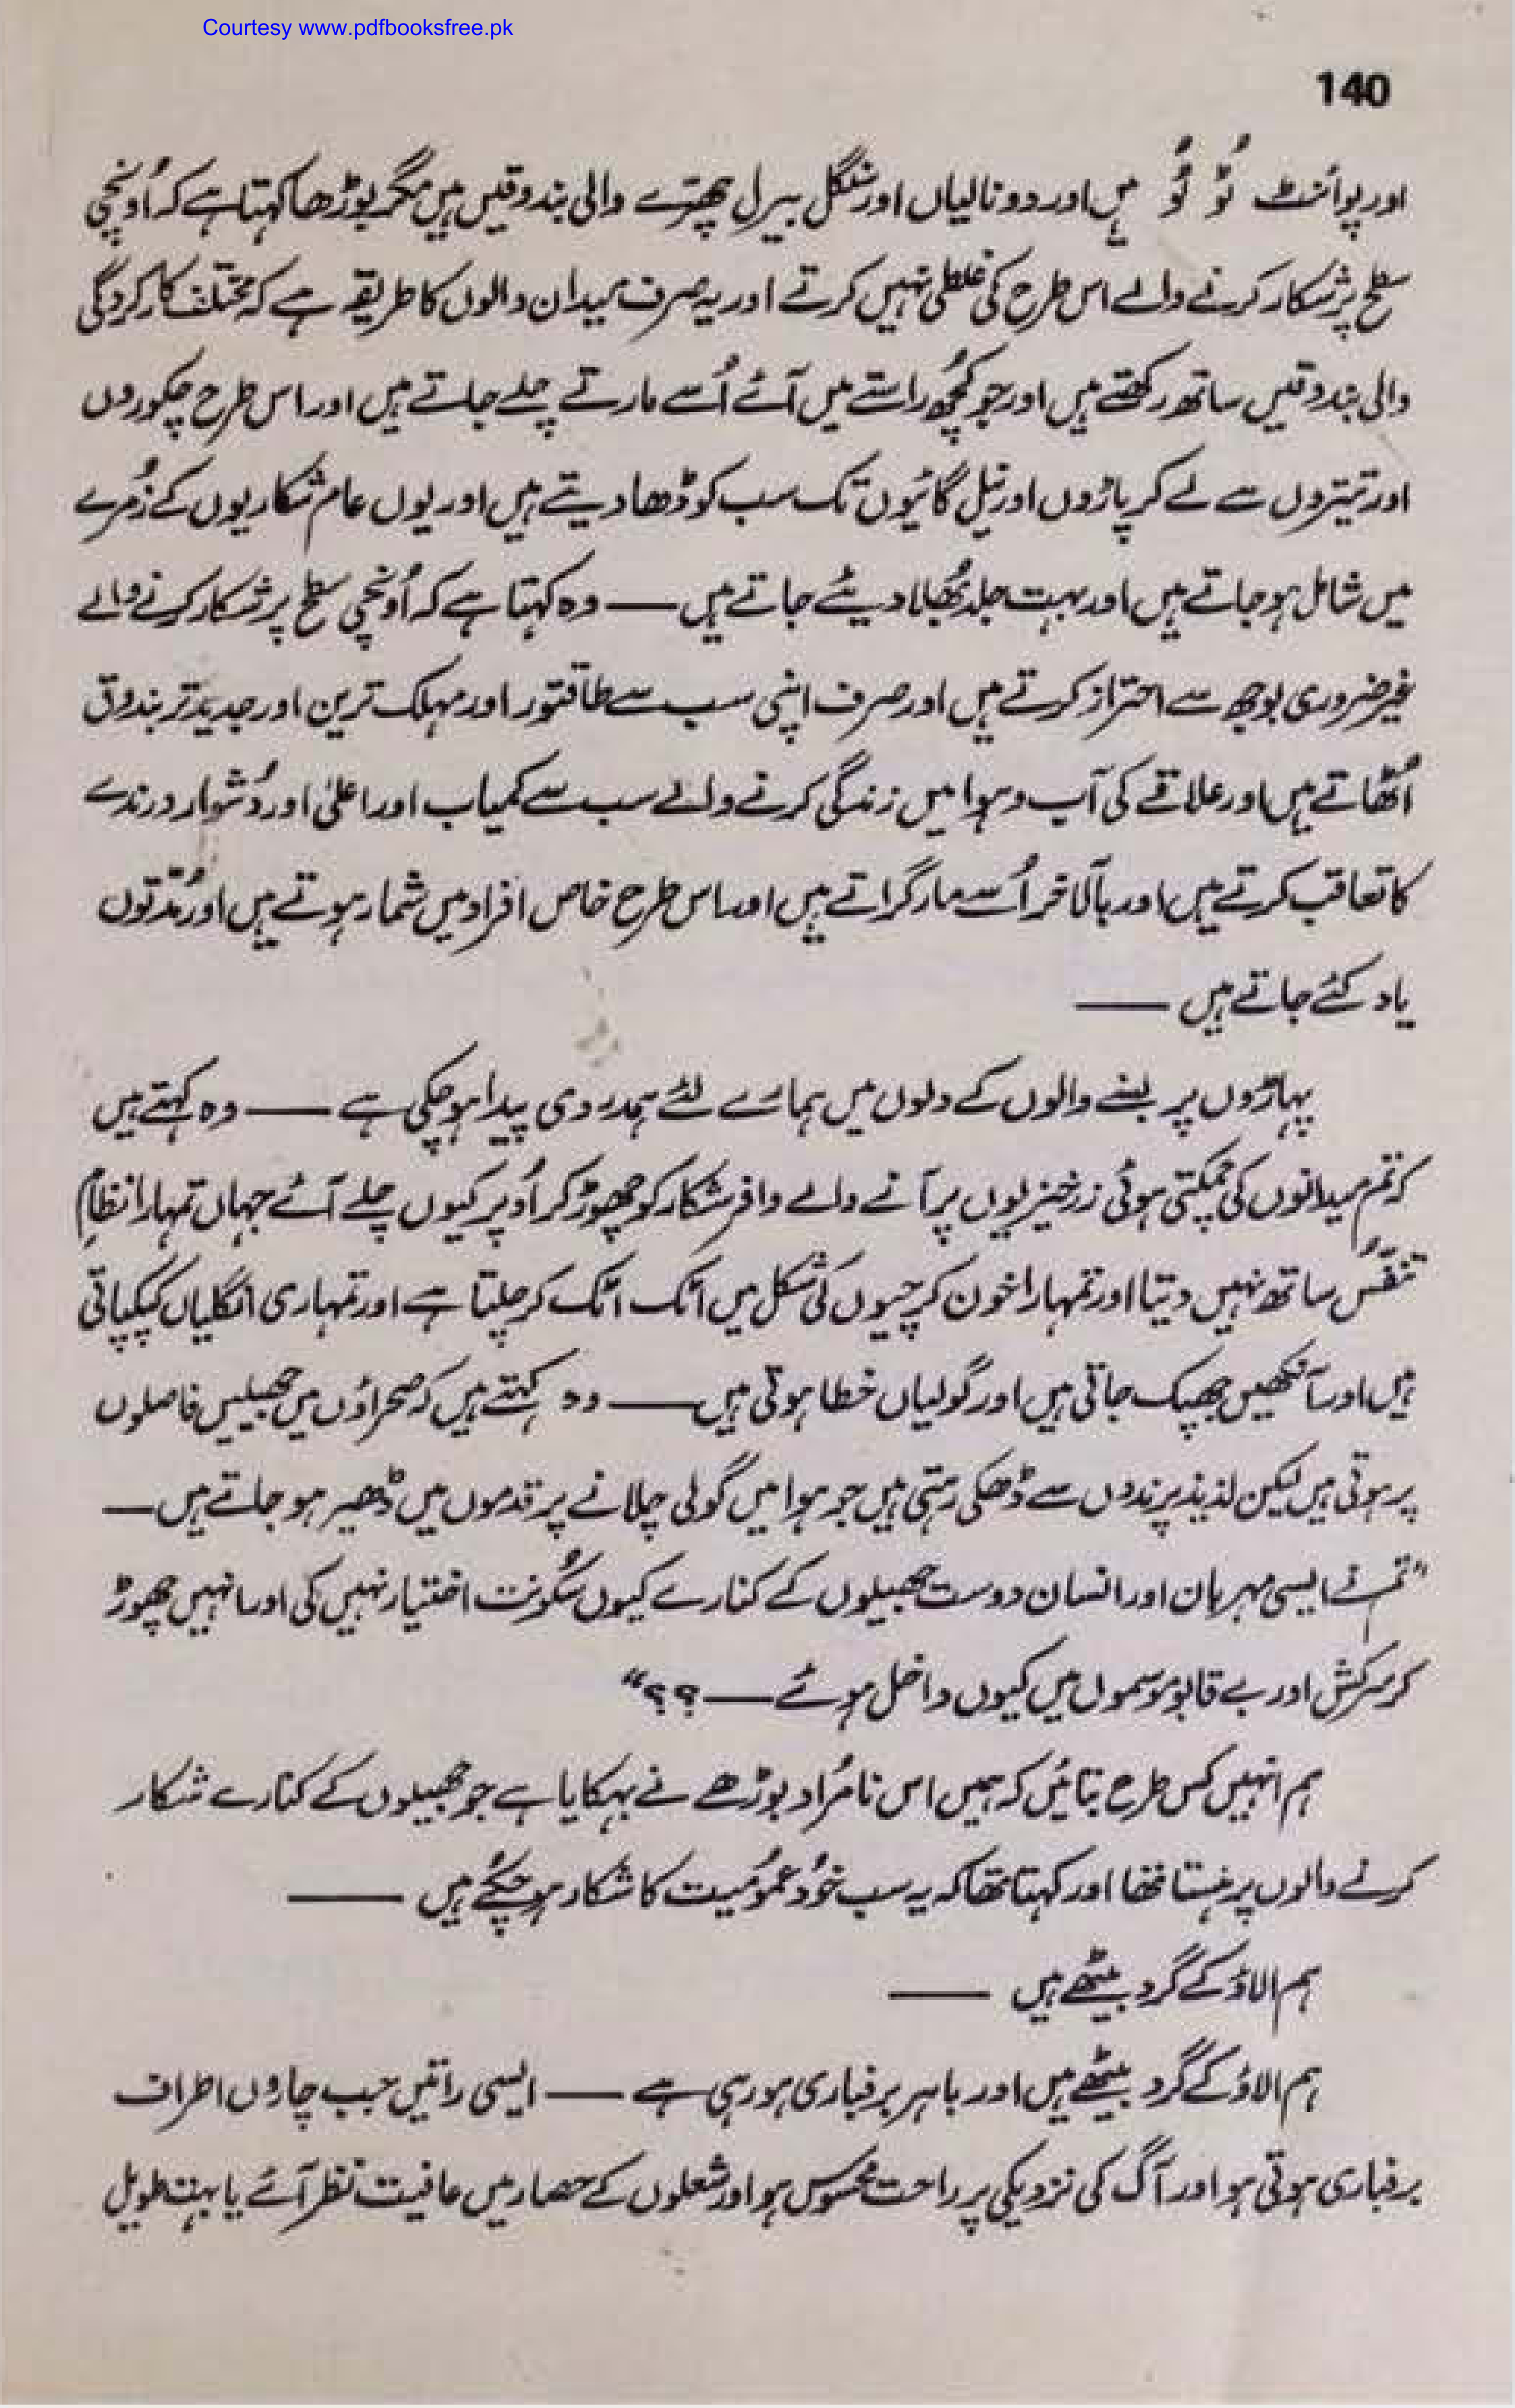 Courtesy www.pdfbooksfree.pk
140
اور پوائنٹ ٹُو ٹُو ہیں اور دو نالیاں اور سنگل بیرل چھرّے والی بندوقیں ہیں مگر بوڑھا کہتا ہے کہ اُونچی
سطح پر شکار کرنے والے اس طرح کی غلطی نہیں کرتے اور یہ صرف میدان والوں کا طریقہ ہے کہ مختلف کارکردگی
والی بندوقیں ساتھ رکھتے ہیں اور جو کچُھ راستے میں آئے اُسے مارتے چلے جاتے ہیں اور اس طرح چکوروں
اور تیتروں سے لے کر پاڑوں اور نیل گائیوں تک سب کو ڈھا دیتے ہیں اور یوں عام شکاریوں کے زُمرے
میں شامل ہو جاتے ہیں اور بہت جلد بُھلا دیئے جاتے ہیں —— وہ کہتا ہے کہ اُونچی سطح پر شکار کرنے والے
غیر ضروری بوجھ سے احتراز کرتے ہیں اور صرف اپنی سب سے طاقتور اور مہلک ترین اور جدید تر بندوق
اُٹھاتے ہیں اور علاقے کی آب و ہوا میں زندگی کرنے والے سب سے کمیاب اور اعلیٰ اور دُشوار درندے
کا تعاقب کرتے ہیں اور بالآخر اُسے مار گراتے ہیں اور اس طرح خاص افراد میں شمار ہوتے ہیں اور مُدّتوں
یاد کئے جاتے ہیں ——
پہاڑوں پر بسنے والوں کے دلوں میں ہمارے لئے ہمدردی پیدا ہو چکی ہے —— وہ کہتے ہیں
کہ تم میدانوں کی چمکتی ہوئی زرخیزیوں پر آنے والے وافر شکار کو چھوڑ کر اُوپر کیوں چلے آئے جہاں تمہارا نظامِ
تنفّس ساتھ نہیں دیتا اور تمہارا خون کرچیوں کی شکل میں اٹک اٹک کر چلتا ہے اور تمہاری انگلیاں کپکپاتی
ہیں اور آنکھیں جھپک جاتی ہیں اور گولیاں خطا ہوتی ہیں —— وہ کہتے ہیں کہ صحراؤں میں جھیلیں فاصلوں
پر ہوتی ہیں لیکن لذیذ پرندوں سے ڈھکی رہتی ہیں جو ہوا میں گولی چلانے پر قدموں میں ڈھیر ہو جاتے ہیں —
”تم نے ایسی مہربان اور انسان دوست جھیلوں کے کنارے کیوں سکُونت اختیار نہیں کی اور انہیں چھوڑ
کر سرکش اور بے قابو موسموں میں کیوں داخل ہوئے —— ؟؟“
ہم انہیں کس طرح بتائیں کہ ہمیں اس نامُراد بوڑھے نے بہکایا ہے جو جھیلوں کے کنارے شکار
کرنے والوں پر ہنستا تھا اور کہتا تھا کہ یہ سب خُود عمُومیت کا شکار ہو چکُے ہیں ——
ہم الاؤ کے گرد بیٹھے ہیں ——
ہم الاؤ کے گرد بیٹھے ہیں اور باہر برفباری ہو رہی ہے —— ایسی راتیں جب چاروں اطراف
برفباری ہوتی ہو اور آگ کی نزدیکی پر راحت محسوس ہو اور شعلوں کے حصار میں عافیت نظر آئے یا بہت طویل